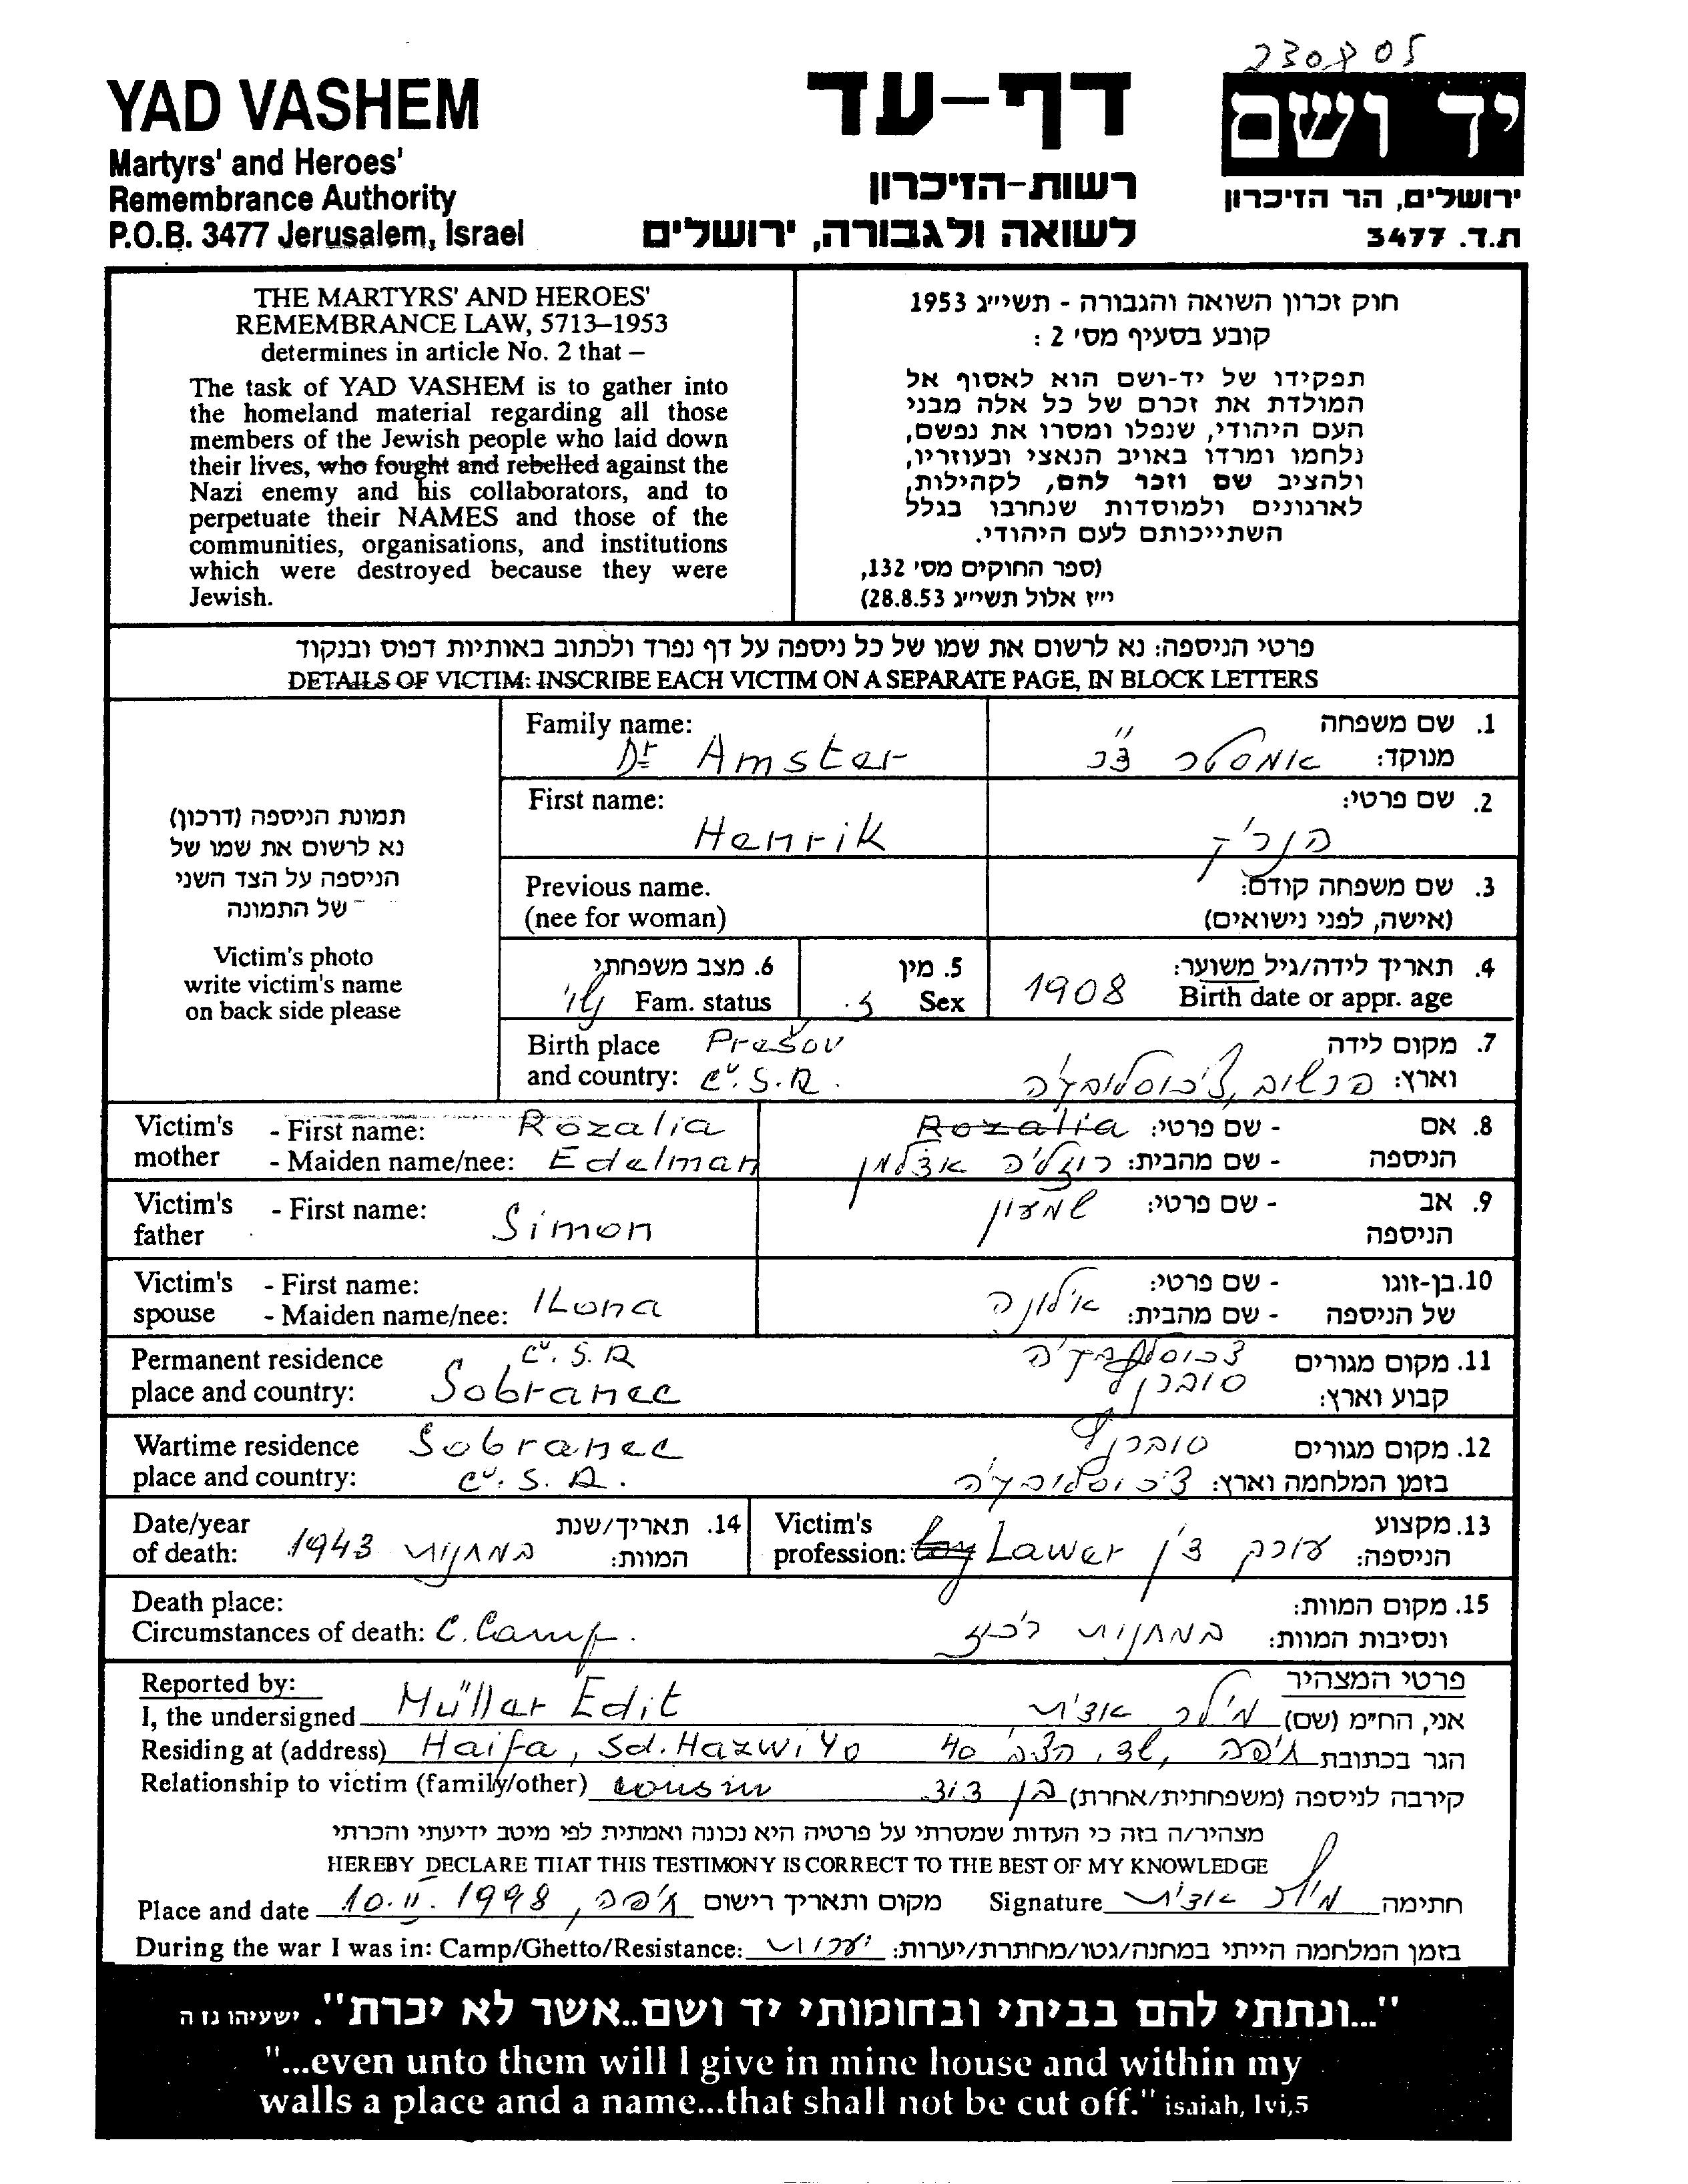 230805
YAD VASHEM
Martyrs' and Heroes'
Remembrance Authority
P.O.B. 3477 Jerusalem, Israel
דף-עד
רשות-הזיכרון
לשואה ולגבורה, ירושלים
יד ושם
ירושלים, הר הזיכרון
ת.ד. 3477
THE MARTYRS' AND HEROES'
REMEMBRANCE LAW, 5713–1953
determines in article No. 2 that –
The task of YAD VASHEM is to gather into
the homeland material regarding all those
members of the Jewish people who laid down
their lives, who fought and rebelled against the
Nazi enemy and his collaborators, and to
perpetuate their NAMES and those of the
communities, organisations, and institutions
which were destroyed because they were
Jewish.
חוק זכרון השואה והגבורה - תשי״ג 1953
קובע בסעיף מס' 2 :
תפקידו של יד-ושם הוא לאסוף אל
המולדת את זכרם של כל אלה מבני
העם היהודי, שנפלו ומסרו את נפשם,
נלחמו ומרדו באויב הנאצי ובעוזריו,
ולהציב שם וזכר להם, לקהילות,
לארגונים ולמוסדות שנחרבו בגלל
השתייכותם לעם היהודי.
(ספר החוקים מס' 132,
י״ז אלול תשי״ג 28.8.53)
פרטי הניספה: נא לרשום את שמו של כל ניספה על דף נפרד ולכתוב באותיות דפוס ובנקוד
DETAILS OF VICTIM: INSCRIBE EACH VICTIM ON A SEPARATE PAGE, IN BLOCK LETTERS
תמונת הניספה (דרכון)
נא לרשום את שמו של
הניספה על הצד השני
של התמונה
Victim's photo
write victim's name
on back side please
Family name: Dr Amster
1. שם משפחה מנוקד: אמסטר
First name: Henrik
2. שם פרטי: הנריק
Previous name.
(nee for woman)
3. שם משפחה קודם:
(אישה, לפני נישואים)
6. מצב משפחתי
Fam. status נשוי
5. מין
Sex ז.
4. תאריך לידה/גיל משוער:
Birth date or appr. age 1908
Birth place Prešov
and country: Č.S.R.
7. מקום לידה
וארץ: פרשוב, צ'כוסלובקיה
Victim's - First name: Rozalia
mother - Maiden name/nee: Edelman
8. אם - שם פרטי: Rozalia
הניספה - שם מהבית: רוזליה אדלמן
Victim's - First name: Simon
father
9. אב - שם פרטי: שמעון
הניספה
Victim's - First name:
spouse - Maiden name/nee: ILona
10. בן-זוגו - שם פרטי: אילונה
של הניספה - שם מהבית:
Permanent residence Č.S.R
place and country: Sobranec
11. מקום מגורים צכוסלובקיה
קבוע וארץ: סוברנץ
Wartime residence Sobranec
place and country: Č.S.R.
12. מקום מגורים סוברנץ
בזמן המלחמה וארץ: צ'כוסלובקיה
Date/year
of death: 1943 במחנות
14. תאריך/שנת
המוות:
Victim's
profession: Lawer
13. מקצוע
הניספה: עורך דין
Death place:
Circumstances of death: C. Camp.
15. מקום המוות:
ונסיבות המוות: במחנות ריכוז
Reported by:
I, the undersigned Müller Edit
Residing at (address) Haifa, Sd. Hazwi 40
Relationship to victim (family/other) cousin
פרטי המצהיר
אני, הח״מ (שם) מילר אדית
הגר בכתובת חיפה, שד. הצבי 40
קירבה לניספה (משפחתית/אחרת) בן דוד
מצהיר/ה בזה כי העדות שמסרתי על פרטיה היא נכונה ואמתית לפי מיטב ידיעתי והכרתי
HEREBY DECLARE THAT THIS TESTIMONY IS CORRECT TO THE BEST OF MY KNOWLEDGE
Place and date 10.II.1998, חיפה מקום ותאריך רישום Signature מילר אדית חתימה
During the war I was in: Camp/Ghetto/Resistance: יערות בזמן המלחמה הייתי במחנה/גטו/מחתרת/יערות:
"...ונתתי להם בביתי ובחומותי יד ושם..אשר לא יכרת". ישעיהו נז ה
"...even unto them will I give in mine house and within my
walls a place and a name...that shall not be cut off." isaiah, lvi,5